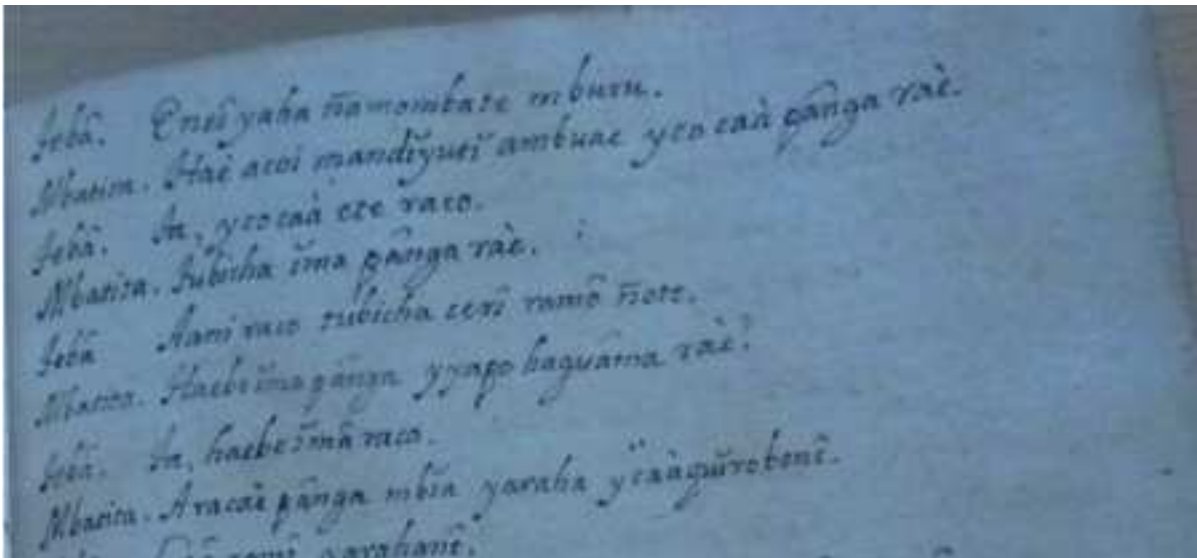 Jebâ. Eneî yaha ñamombate mburu.
Mbatita. Hae acoi mandĭyuetĭ ambuae yco caà pânga raè.
Jebâ. Ta, yco caà ete raco.
Mbatita. Tubicha ĭma pânga raè.
Jebâ Aani raco tubicha cerî ramô ñote.
Mbatita. Haebeĭma pânga yyapo haguâma raè.
Jebâ. Ta, haebeĭmâ raco.
Mbatita. Aracaè pânga mbĭa yaraha ycaàguĭrobonê.
yarahanê.